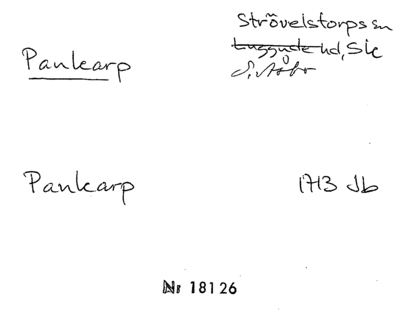 Strövelstorps sn
Pankarp
Luggude hd, Sk
S. Åsbo
Pankarp
1713 Jb
Nr 18126